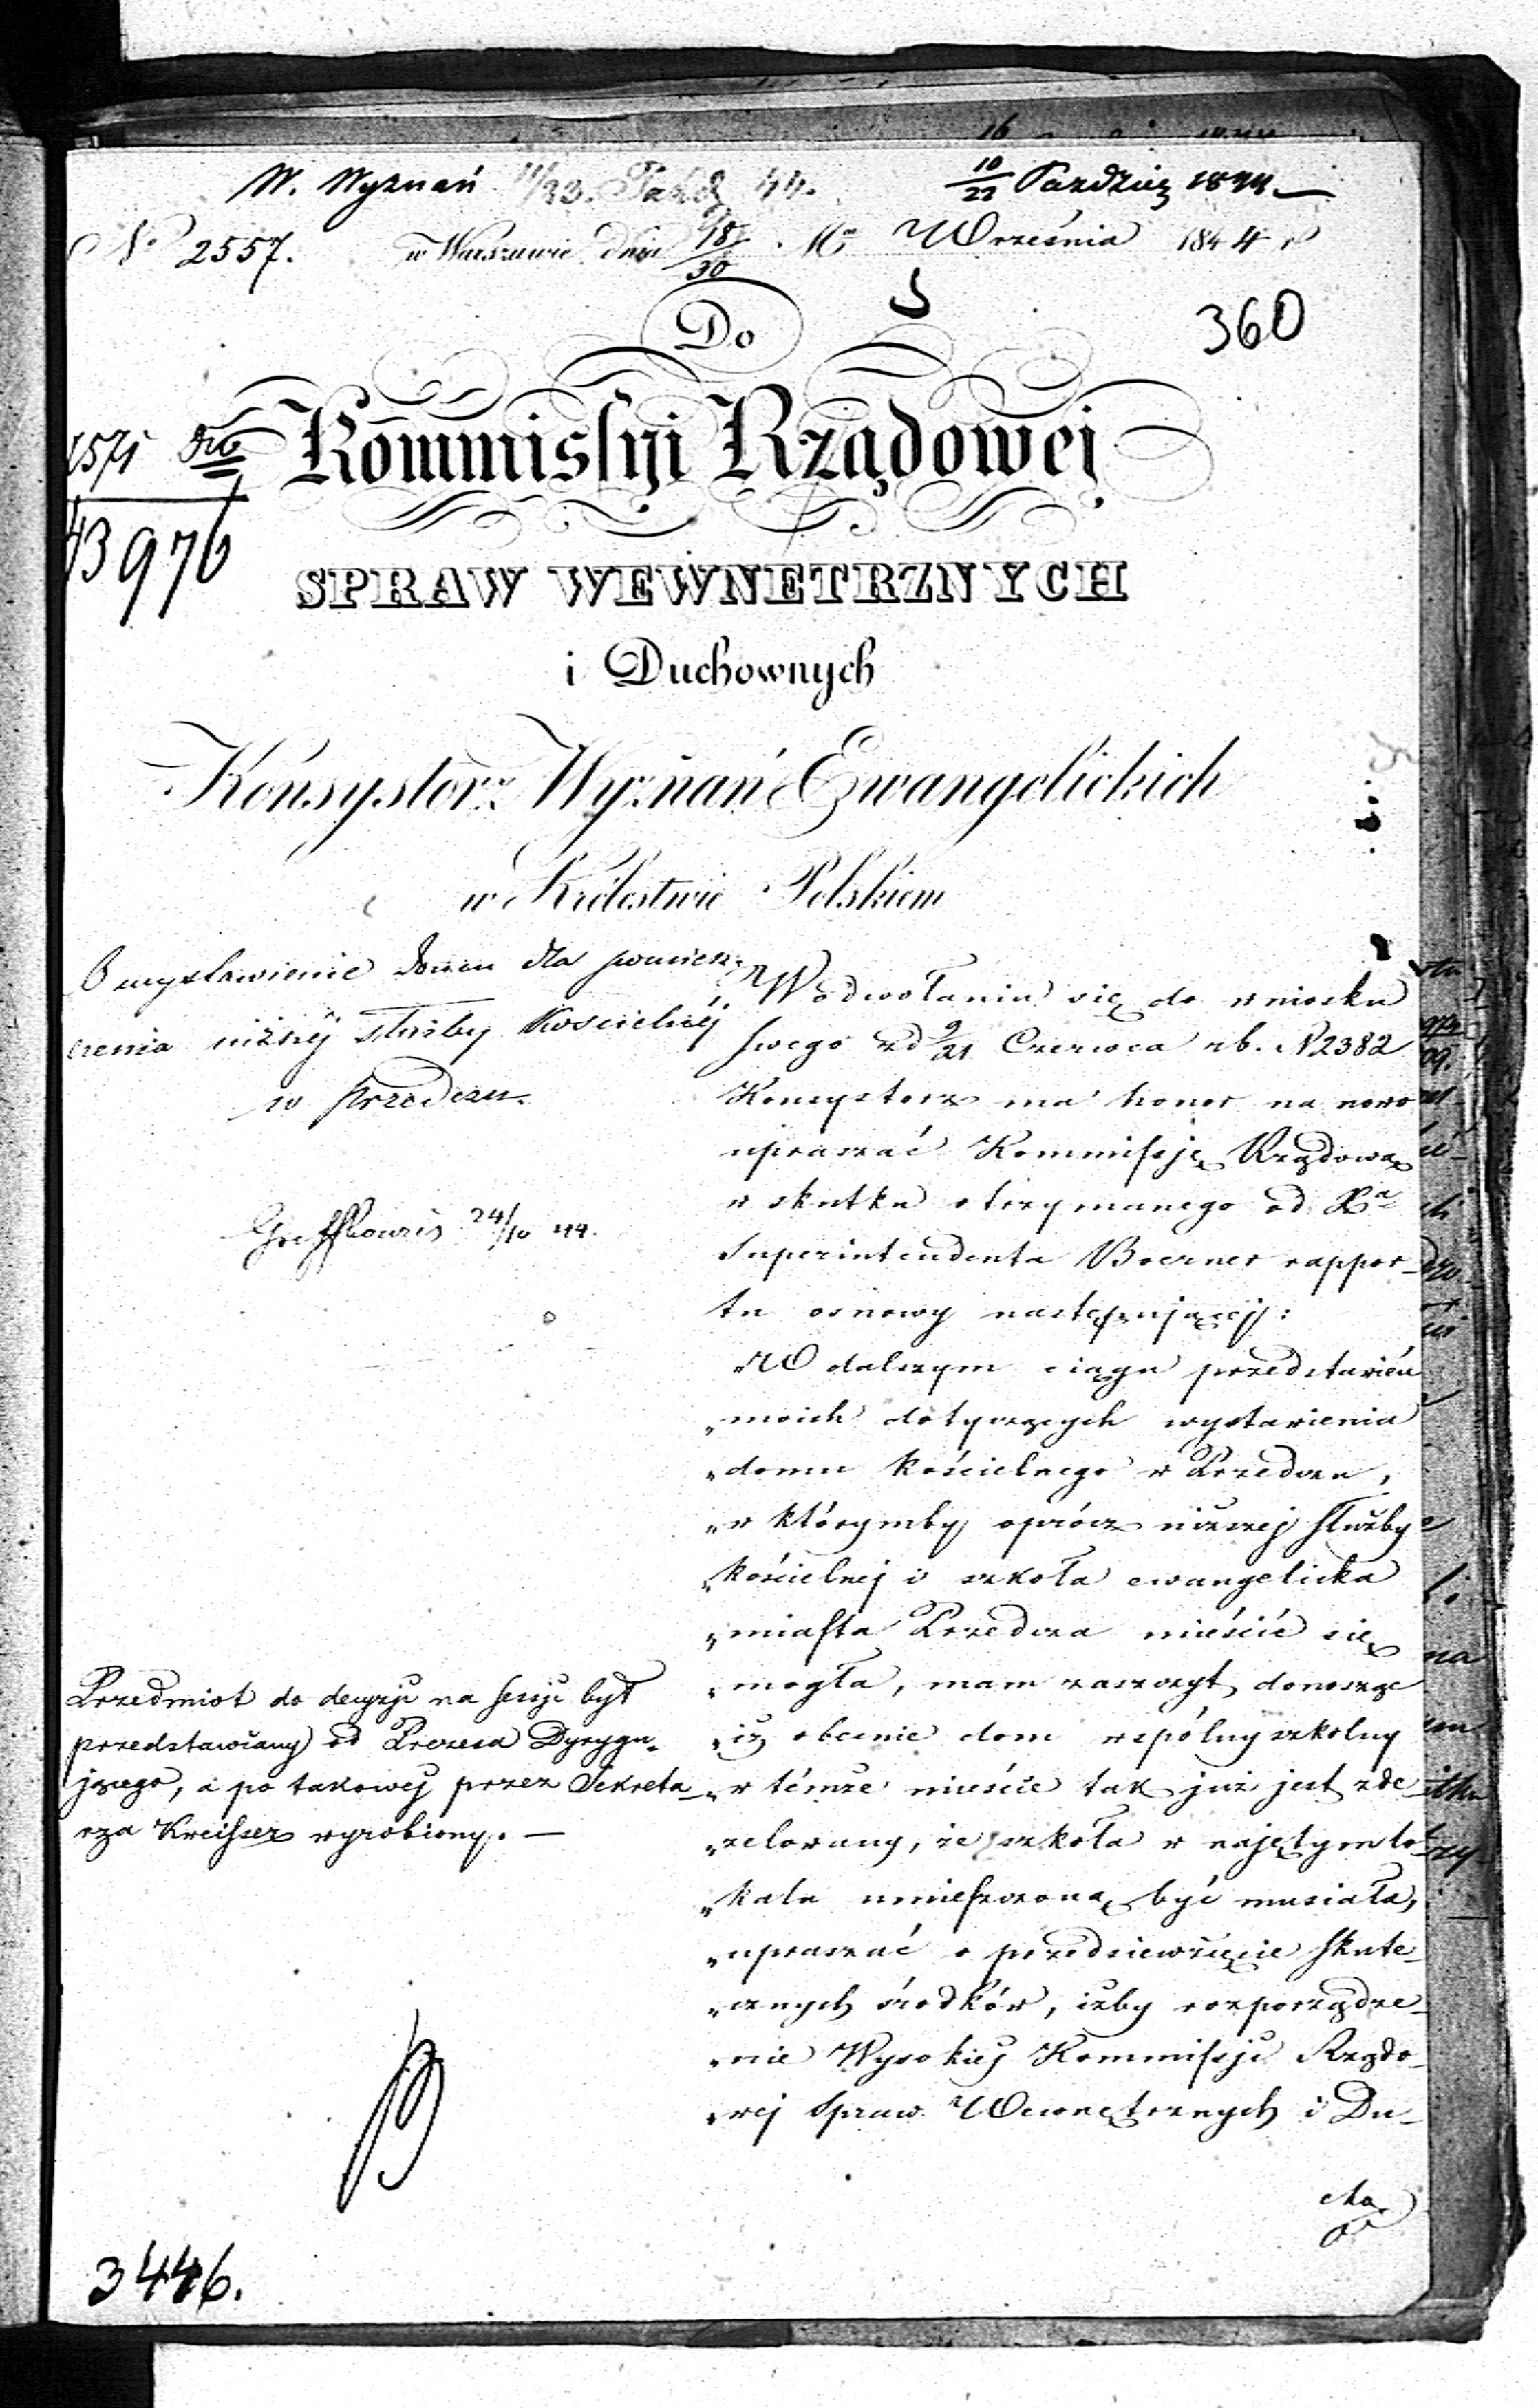 W. Wyznań 11/23. Paźdz 44.
10/22 Pazdzier 1844
No 2557. w Warszawie dnia 18/30 Mca Września 1844 r
360
Do
Kommissyi Rządowej
1571
43976
SPRAW WEWNETRZNYCH
i Duchownych
Konsystorz Wyznań Ewangelickich
w Królestwie Polskiem
O wystawienie domu dla pomiesz-
czenia niższej służby Kościelnéj
w Przedczu.
24/10 44.
Przedmiot do decyzji na sessji był
przedstawiany od Prezesa Dyrygu-
jącego, a po takowej przez Sekreta-
rza Kreisser wyrobiony. —
W odwołaniu się do wniosku
swego zd 9/21 Czerwca rb. N 2382
Konsystorz ma honor na nowo
upraszać Kommissję Rządową
w skutku otrzymanego od Xa
Superintendenta Boerner rappor-
tu osnowy następującej:
„W dalszym ciągu przedstawień
„moich dotyczących wystawienia
„domu kościelnego w Przedczu,
„w którymby oprócz niższej służby
„kościelnej i szkoła ewangelicka
„miasta Przedcza mieścić się
„mogła, mam zaszczyt donosząc
„iż obecnie dom wspólny szkolny
„w témże mieście tak już jest zde-
„zelowany, że szkoła w najętym lo-
„kalu umieszczoną być musiała,
„upraszać o przedsiewzięcie skute-
„cznych środków, iżby rozporządze-
„nie Wysokiej Kommissji Rządo-
„wej Spraw Wewnętrznych i Du-
cho
3446.